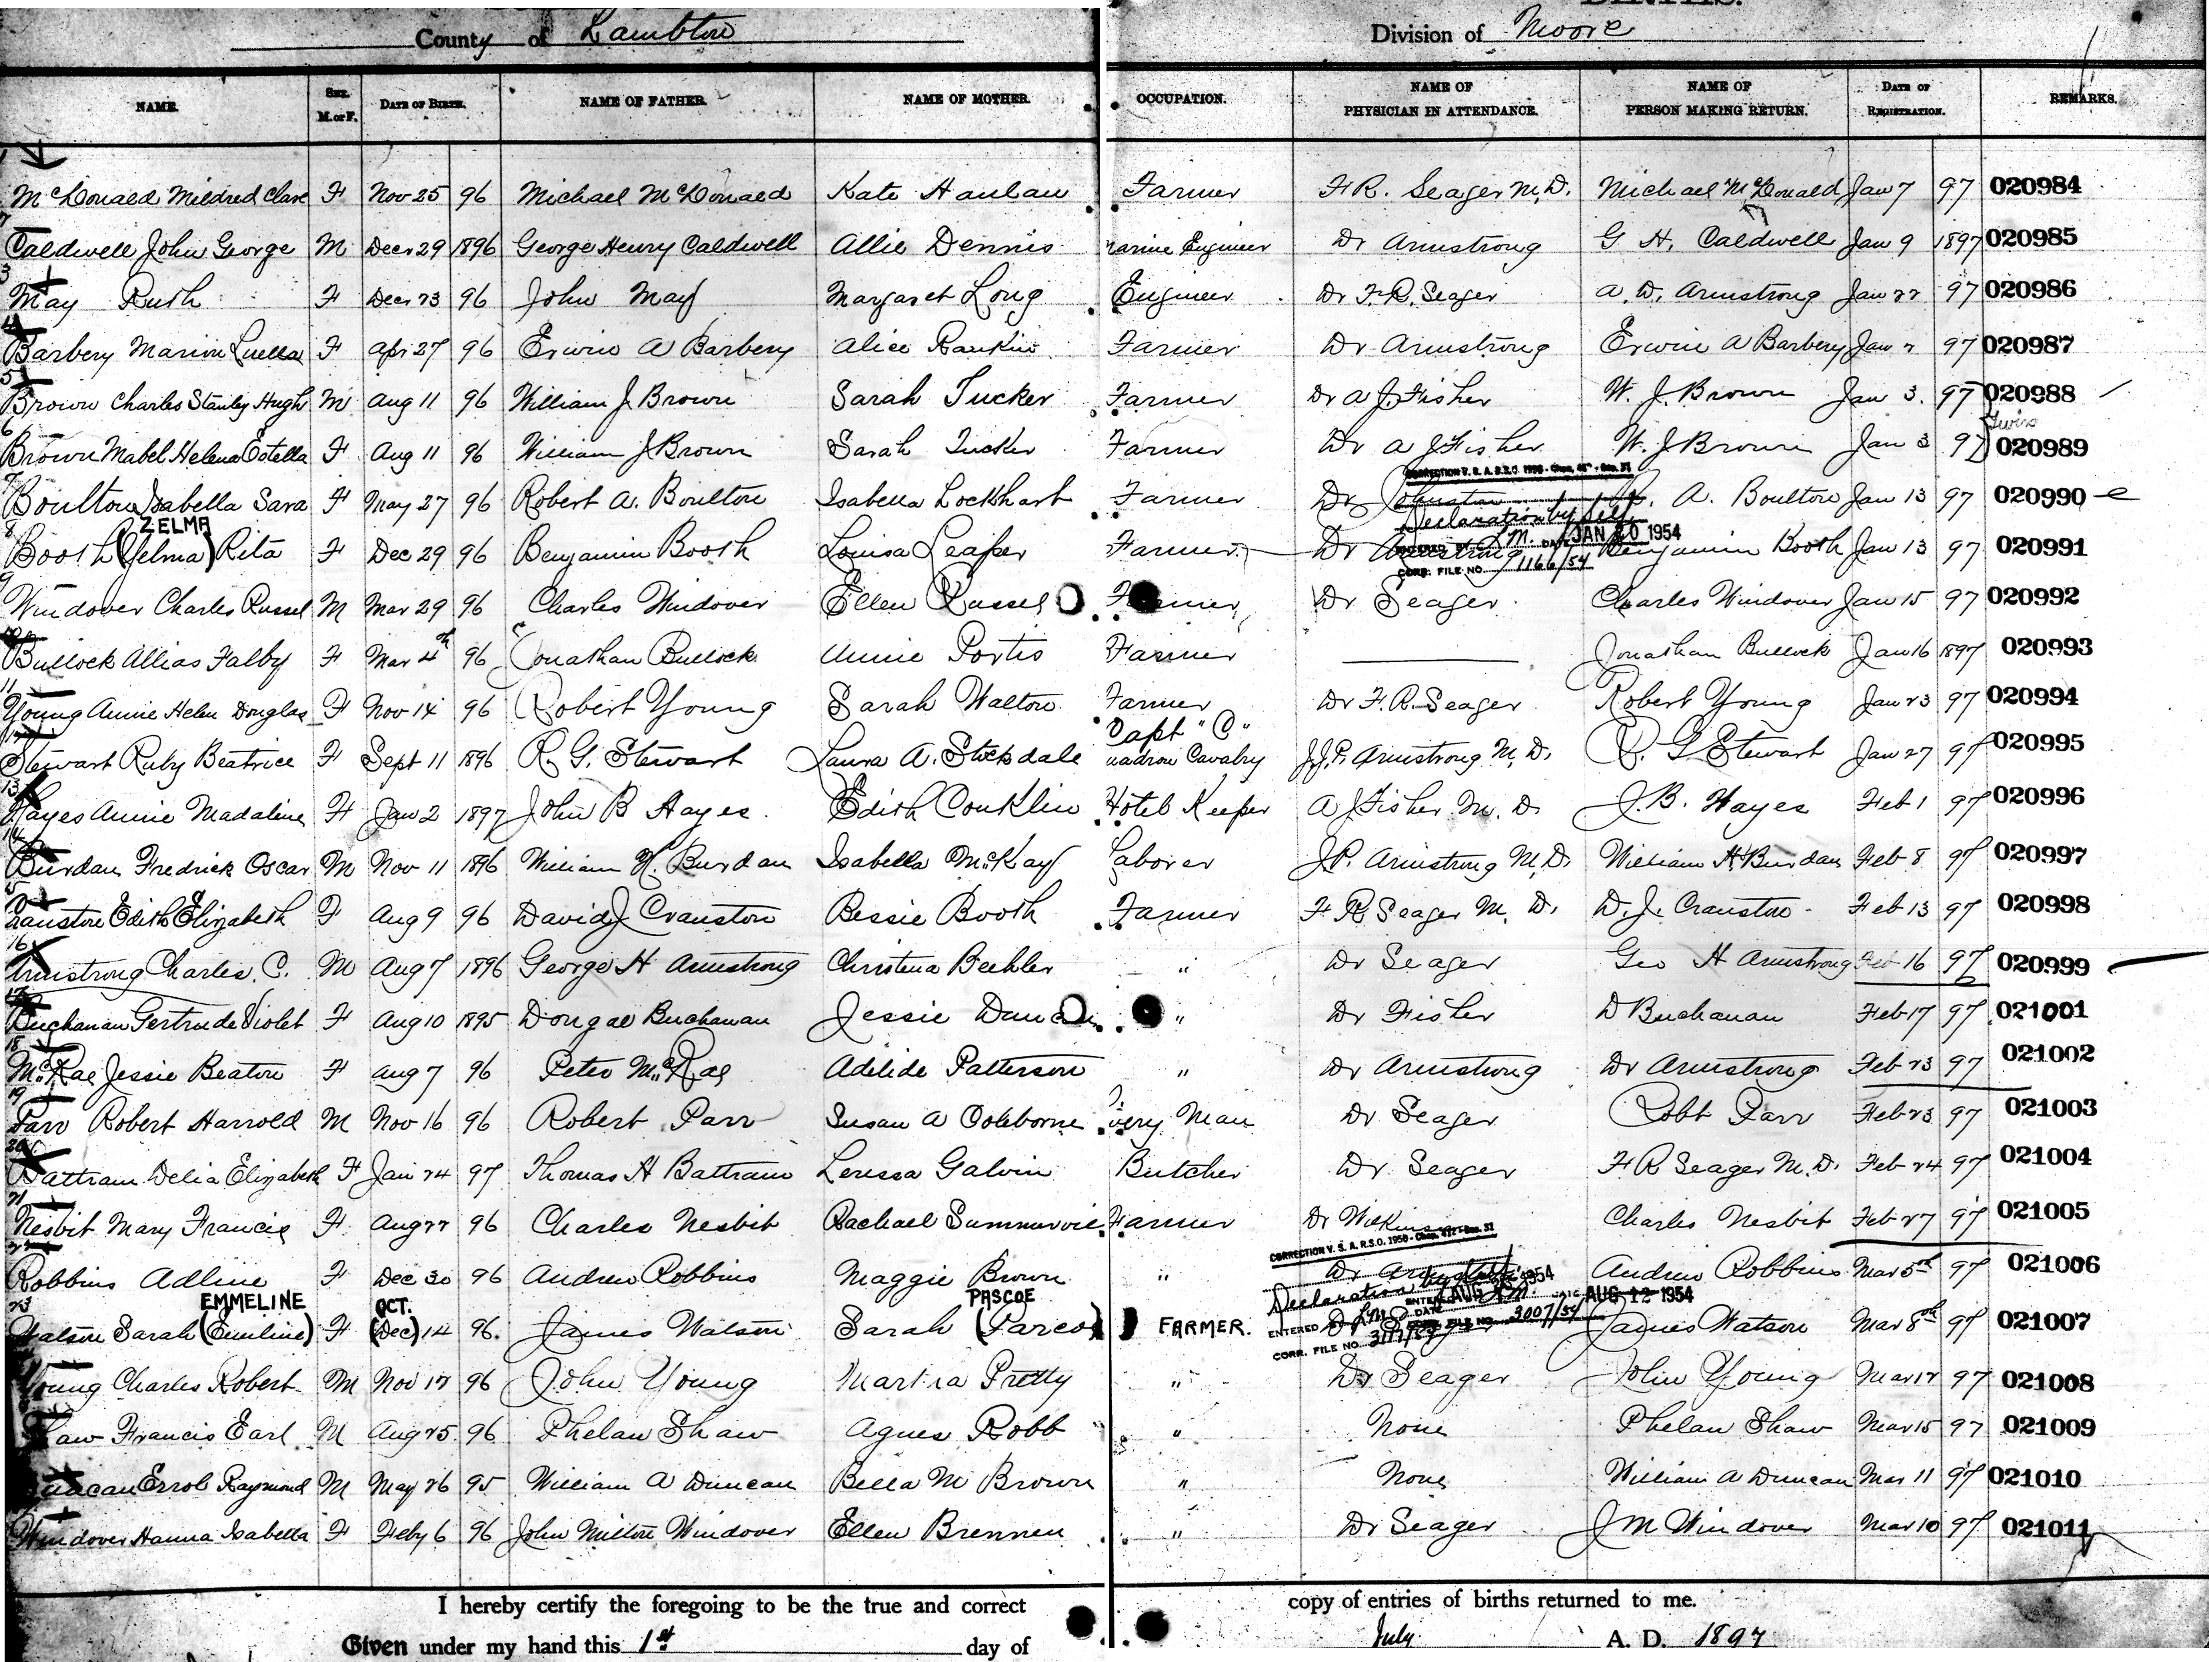 County of Lambton Division of Moore
NAME. SEX. M. or F. DATE OF BIRTH. NAME OF FATHER. NAME OF MOTHER. OCCUPATION. NAME OF PHYSICIAN IN ATTENDANCE. NAME OF PERSON MAKING RETURN. DATE OF REGISTRATION. REMARKS.
McDonald Mildred Clare F Nov 25 96 Michael McDonald Kate Hanlan Farmer F R. Seager M.D. Michael McDonald Jan 7 97 020984
Caldwell John George M Decr 29 1896 George Henry Caldwell Allie Dennis Marine Engineer Dr Armstrong G H. Caldwell Jan 9 1897 020985
3 May Ruth F Decr 23 96 John May Margaret Long Engineer Dr F.R. Seager A. D. Armstrong Jan 22 97 020986
4 Barbery Marion Luella F Apr 27 96 Erwin A Barbery Alice Rankin Farmer Dr Armstrong Erwin A Barbery Jan 2 97 020987
5 Brown Charles Stanley Hugh M Aug 11 96 William J Brown Sarah Tucker Farmer Dr A J. Fisher W. J. Brown Jan 3. 97 020988
Twins
6 Brown Mabel Helena Estella F Aug 11 96 William J Brown Sarah Tucker Farmer Dr A J Fisher W. J Brown Jan 3 97 020989
Boulton Isabella Sara F May 27 96 Robert A. Boulton Isabella Lockhart Farmer Dr Johnston R. A. Boulton Jan 13 97 020990
ZELMA Declaration by self
8 Booth (Yelma) Rita F Dec 29 96 Benjamin Booth Louisa Leaper Farmer Dr Armstrong DATE JAN 20 1954 Benjamin Booth Jan 13 97 020991
CORR. FILE NO. 1166/54
9 Windover Charles Russel M Mar 29 96 Charles Windover Ellen Russel Farmer Dr Seager Charles Windover Jan 15 97 020992
Bullock Allias Falby F Mar 4th 96 Jonathan Bullock Annie Portis Farmer Jonathan Bullock Jan 16 1897 020993
11 Young Annie Helen Douglas F Nov 14 96 Robert Young Sarah Walton Farmer Dr F. R. Seager Robert Young Jan 23 97 020994
Capt "C"
Stewart Ruby Beatrice F Sept 11 1896 R. G. Stewart Laura A. Stocksdale uadron Cavalry J.P. Armstrong M.D. R. G Stewart Jan 27 97 020995
13 Hayes Annie Madaline F Jan 2 1897 John B Hayes. Edith Conklin Hotel Keeper A J Fisher M. D. J. B. Hayes Feb 1 97 020996
14 Burdan Fredrick Oscar M Nov 11 1896 William H. Burdan Isabella McKay Laborer J.P. Armstrong M.D. William H Burdan Feb 8 97 020997
Cranston Edith Elizabeth F Aug 9 96 David J Cranston Bessie Booth Farmer F R Seager M. D. D. J. Cranston Feb 13 97 020998
16 Armstrong Charles. C. M Aug 7 1896 George H Armstrong Christena Beehler " Dr Seager Geo H Armstrong Feb 16 97 020999
Buchanan Gertrude Violet F Aug 10 1895 Dougal Buchanan Jessie Duncan " Dr Fisher D Buchanan Feb 17 97 021001
18 McRae Jessie Beaton F Aug 7 96 Peter McRae Adelide Patterson " Dr Armstrong Dr Armstrong Feb 23 97 021002
19 Parr Robert Harrold M Nov 16 96 Robert Parr Susan A Coleborne very Man Dr Seager Robt Parr Feb 23 97 021003
20 Battram Delia Elizabeth F Jan 24 97 Thomas H Battram Lerissa Galvin Butcher Dr. Seager F R Seager M.D. Feb 24 97 021004
21 Nesbit Mary Francis F. Aug 22 96 Charles Nesbit Rachael Summervie Farmer Dr Wilkins Charles Nesbit Feb 27 97 021005
CORRECTION V. S. A. R.S.O. 1950
Robbins Adline F Dec 30 96 Andrew Robbins Maggie Brown " Dr Armstrong Andrew Robbins Mar 5th 97 021006
EMMELINE OCT. PASCOE Declaration AUG 12 1954
23 Watson Sarah (Emiline) F (Dec) 14 96. James Watson Sarah (Parcos) FARMER. James Watson Mar 8th 97 021007
CORR. FILE NO. 3007/54
Young Charles Robert M Nov 12 96 John Young Martha Pretty " Dr Seager John Young Mar 12 97 021008
Shaw Francis Earl M Aug 25 96 Phelan Shaw Agnes Robb " None Phelan Shaw Mar 15 97 021009
Duncan Errol Raymond M May 26 95 William A Duncan Bella M Brown " None William A Duncan Mar 11 97 021010
Windover Hanna Isabella F Feby 6 96 John Milton Windover Ellen Brennen " Dr Seager J M Windover Mar 10 97 021011
I hereby certify the foregoing to be the true and correct copy of entries of births returned to me.
Given under my hand this 1st day of July A. D. 1897